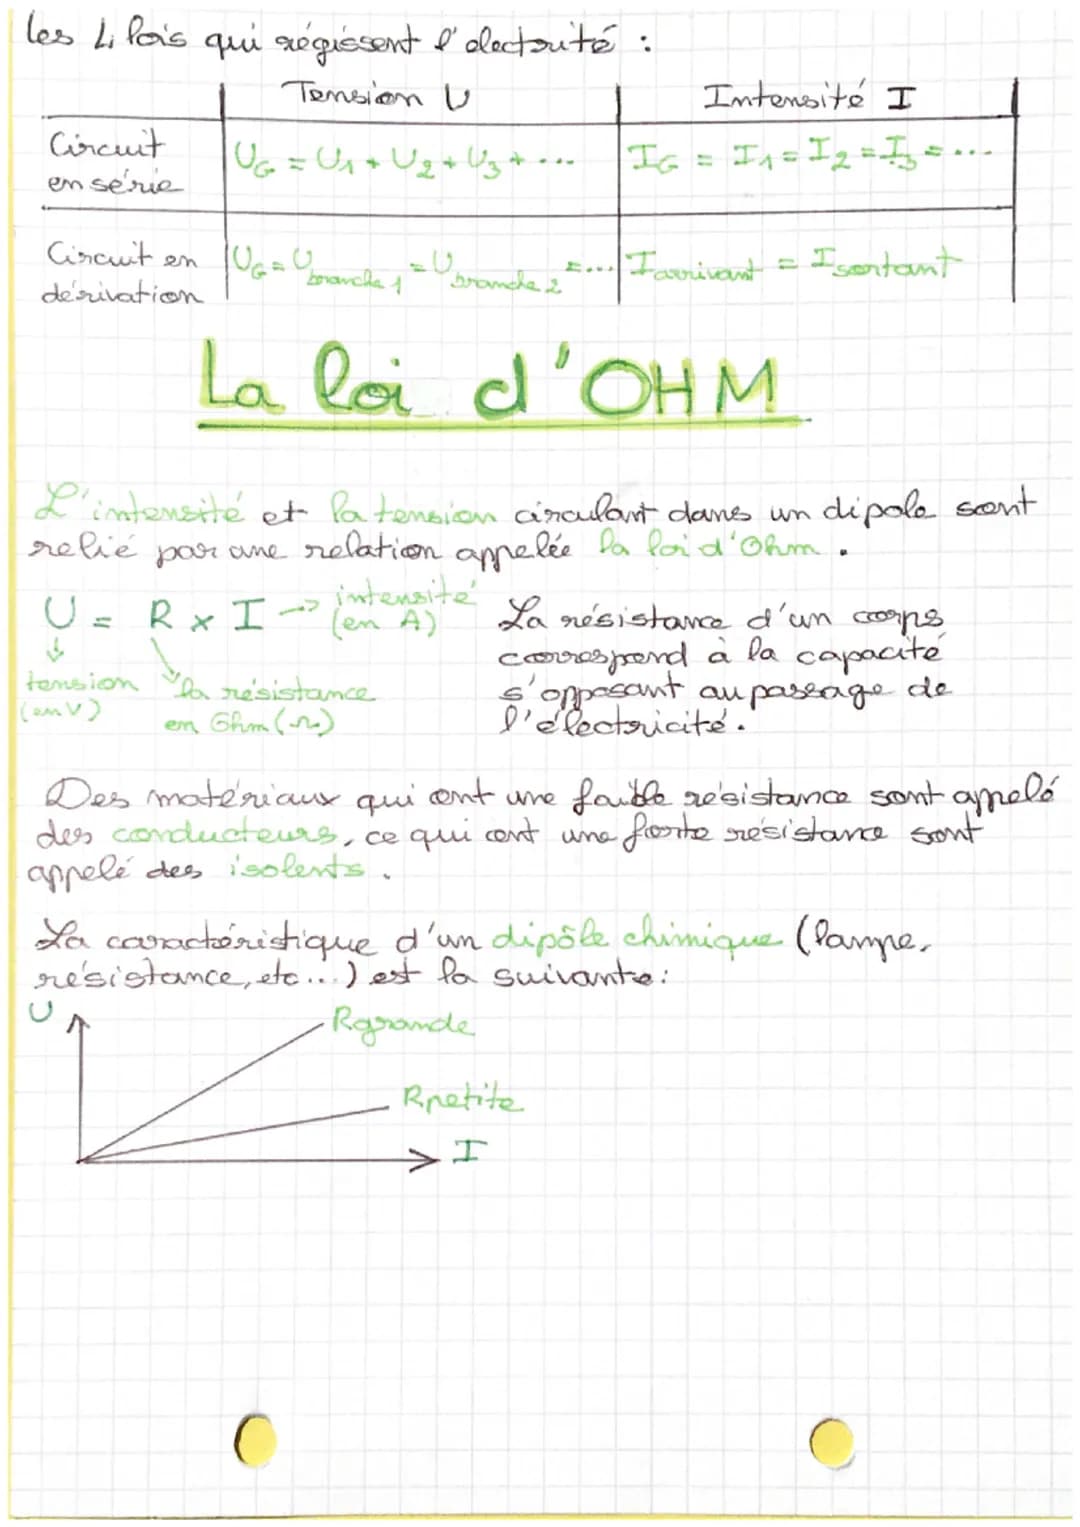 les 4 lois qui régissent l'electrité :
Tension U
Intensité I
Circuit
en série
UG = U1 + U2 + U3 + ...
IG = I1 = I2 = I3 = ...
Circuit en
dérivation
UG = Ubranche 1 = Ubranche 2 = ...
Iarrivant = Isortant
La loi d'OHM
L'intensité et la tension circulant dans un dipole sont
relié par une relation appelée la loi d'Ohm.
U = R x I → intensité
(en A)
tension
(en V)
la résistance
en Ohm (Ω)
La résistance d'un corps
correspond à la capacité
s'opposant au passage de
l'électricité.
Des matériaux qui ont une faible résistance sont appelé
des conducteurs, ce qui ont une forte résistance sont
appelé des isolents.
La caractéristique d'un dipôle chimique (lampe,
résistance, etc...) est la suivante:
U
Rgrande
Rpetite
I